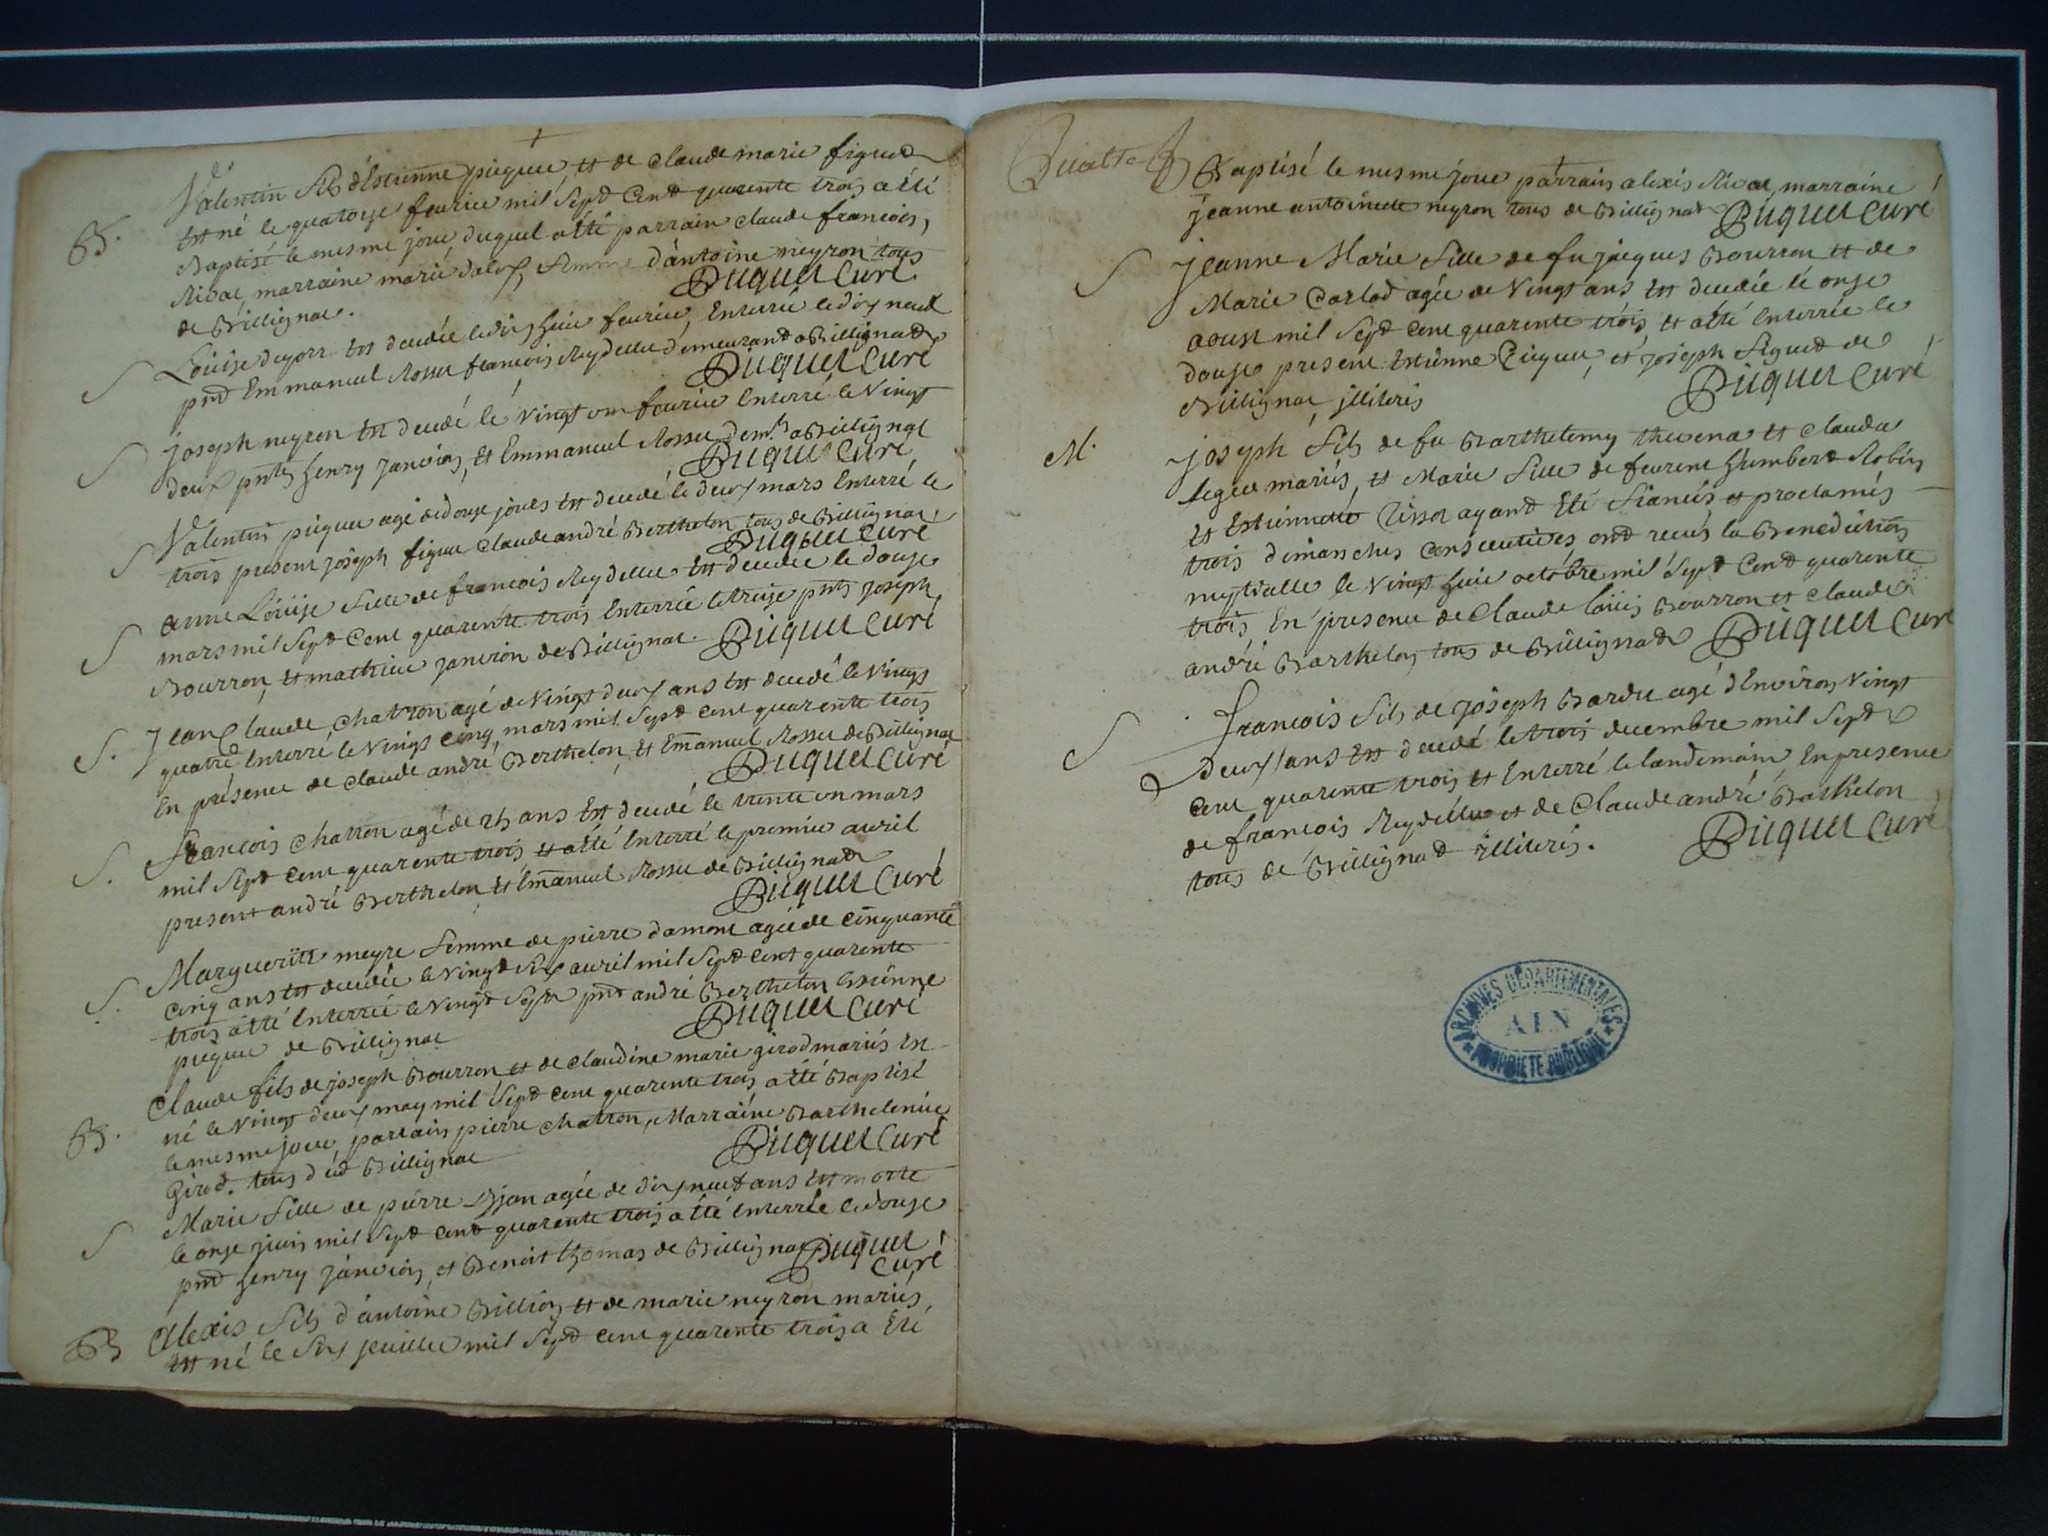 B.
Valentin fils d'Estienne piquet et de Claude marie figuet
est né le quatorze feurier mil sept cent quarente trois a été
Baptisé le mesme jour duquel a été parrain claude francois
Rival, marraine marie femme d'antoine neyron tous
de Billignat. Puquet Curé
S
Louise est decedée le dix huit feurier, Enterrée le dix neuf
pnt Emmanuel Rosset francois Reydellet demeurant a Billignat
Puquet Curé
S
joseph neyron est decedé le vingt un feurier Enterré le vingt
deux pnts henry janvion, et Emmanuel Rosset demts a Billignat
Puquet Curé
S
Valentin piquet agé de douze jours est decedé le deux mars Enterré le
trois present joseph figuet claude andré Berthelon tous de Billignat
Puquet Curé
S
anne Louise fille de francois Reydellet est decedée le douze
mars mil sept cent quarente trois Enterrée le treize pnts joseph
Bourron, et mathieu janvion de Billignat. Puquet Curé
S.
Jean Claude Chatron agé de vingt deux ans est decedé le vingt
quatre Enterré le vingt cinq mars mil sept cent quarente trois
En présence de claude andré Berthelon, et Emanuel Rosset de Billignat
Puquet Curé
S.
francois Chatron agé de ans Est decedé le trente un mars
mil sept cent quarente trois et a été Enterré le premier auril
present andré Berthelon et Emanuel Rosset de Billignat
Puquet Curé
S.
Margueritte meyre femme de pierre damont agée de cinquante
cinq ans est decedée le vingt six auril mil sept cent quarente
trois a été Enterrée le vingt sept pnt andré Berthelon Estienne
piquet de Billignat Puquet Curé
B.
Claude fils de joseph Bourron et de claudine marie girod mariés En
né le vingt deux may mil sept cent quarente trois a été Baptisé
le mesme jour, parrain pierre chatron, Marraine Barthelemie
Girod. tous dud Billignat Puquet Curé
S
Marie fille de pierre agée de dix neuf ans est morte
le onze juin mil sept cent quarente trois a été Enterrée le douze
pnt henry janvion, et Benoit thomas de Billignat Puquet
Curé
B
Alexis fils d'antoine Billion et de marie neyron mariés
est né le six jeuillet mil sept cent quarente trois a Eté
Baptisé le mesme jour parrain alexis Rival, marraine
jeanne antoinette neyron tous de Billignat Puquet Curé
S
Jeanne Marie fille de fu jacques Bourron et de
Marie Carlod agée de vingt ans est decedée le onze
aoust mil sept cent quarente trois, et a été Enterrée le
douze present Estienne Piquet, et joseph figuet de
Billignat jlliterés Puquet Curé
M.
joseph fils de fu Barthelemy thevenat et clauda
mariés, et Marie fille de feurent humbert Robin
et Estiennette Tissot ayant Eté fiancés et proclamés
trois dimanches consecutives ont receus la Benediction
nuptialle le vingt huit octobre mil sept cent quarente
trois, En presence de Claude louis Bourron et claude
andré Barthelon tous de Billignat Puquet Curé
S
francois fils de joseph Bardet agé d'Environ vingt
deux ans est decedé le trois decembre mil sept
cent quarente trois et Enterré le landemain En presence
de francois Reydellet et de Claude andré Barthelon
tous de Billignat illiterés. Puquet Curé
ARCHIVES DÉPARTEMENTALES
AIN
PROPRIÉTÉ PUBLIQUE